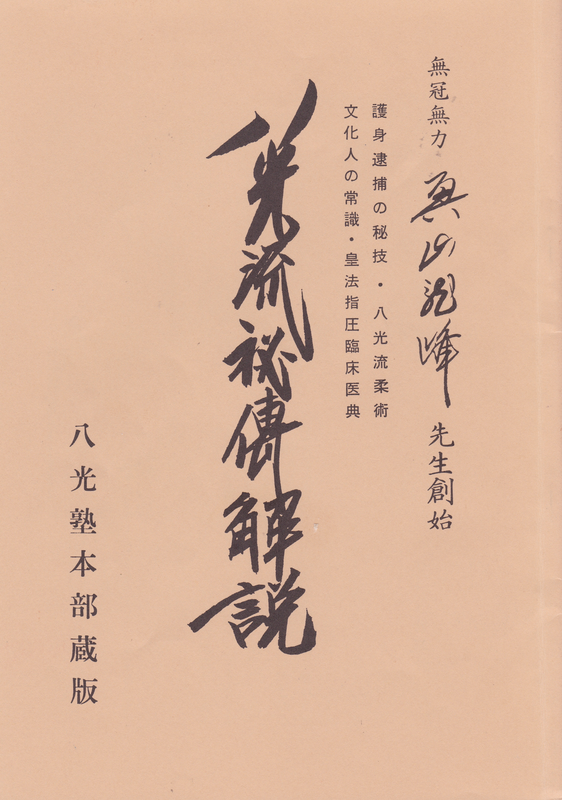 無冠無力 奥山龍峰 先生創始
護身逮捕の秘技・八光流柔術
文化人の常識・皇法指圧臨床医典
八光流祕傳解説
八光塾本部蔵版